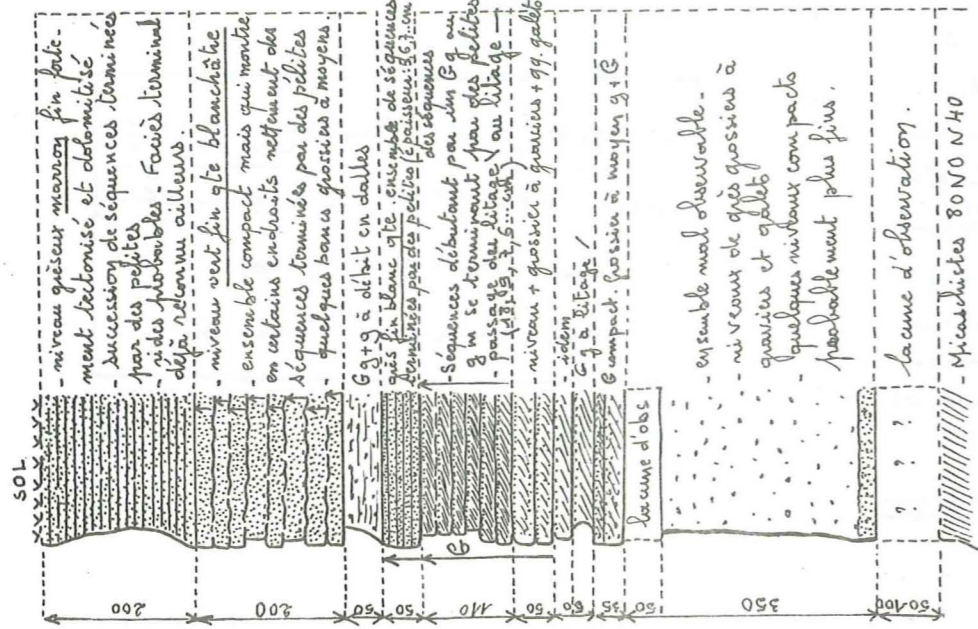 SOL
- niveau gréseux marron fin forte-
ment tectonisé et dolomitisé
- succession de séquences terminées
par des pelites
- rides probables - Faciès terminal
déjà reconnu ailleurs
- niveau vert fin qte blanchâtre
- ensemble compact mais qui montre
en certains endroits nettement des
séquences terminées par des pélites
- quelques bancs grossiers à moyens.
G g+g à débit en dalles
grès fin blanc qte ensemble de séquences
terminées par des pelites (épaisseur: 3,6,7...cm
des séquences
- Séquences débutant par un Gg ou
g m se terminant par des pelites
passage du litage \ au litage —
(18,9,7,5...cm)
- niveau + grossier à graviers + qq. galets
- idem
G g à litage /
G compact grossier à moyen g+G
lacune d'obs
- ensemble mal observable -
niveaux de grès grossiers à
graviers et galets
quelques niveaux compacts
probablement plus fins.
? ? ?
lacune d'observation.
- Micaschistes 80N0N40
G
200
200
50
50
110
50
60
35
50
350
50-100